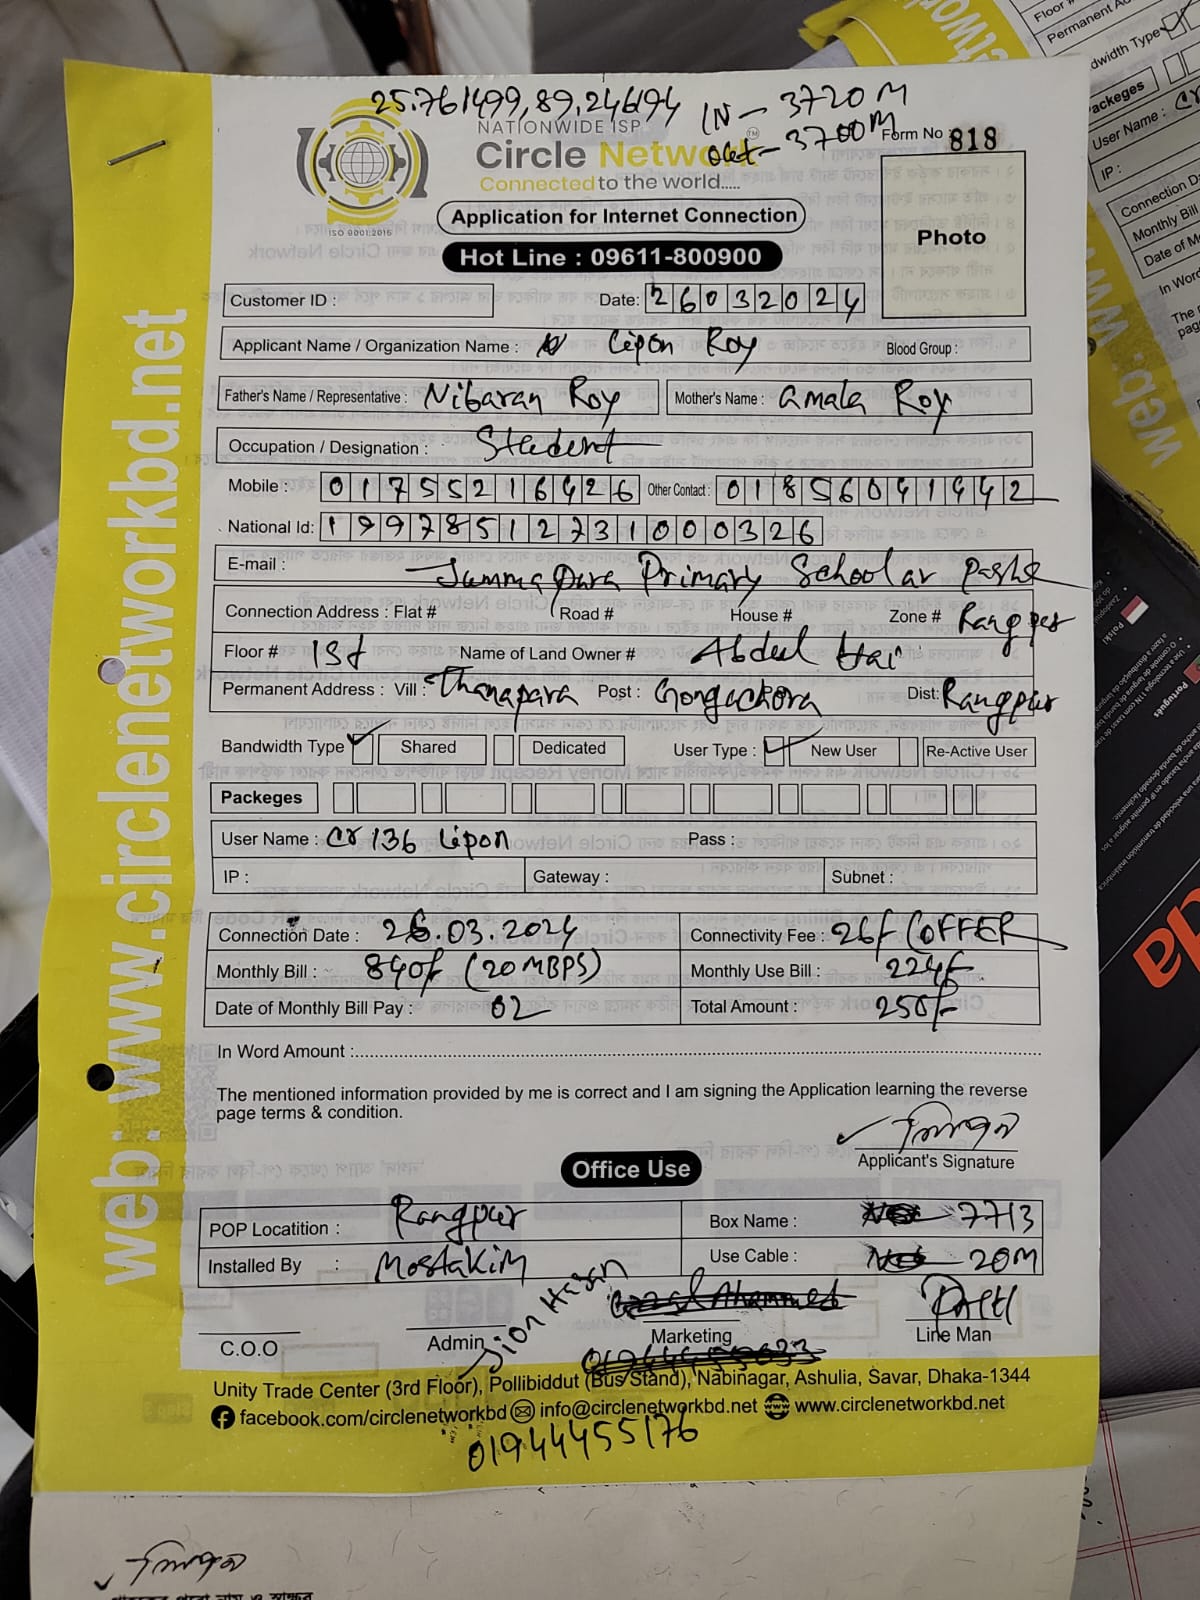 25.761499,89.246194
IN - 3720M
out - 3700M
NATIONWIDE ISP
Circle Network
TM
Connected to the world.....
ISO 9001:2015
Form No 818
Photo
Application for Internet Connection
Hot Line : 09611-800900
Customer ID :
Date: 26032024
Applicant Name / Organization Name : Lipon Roy Blood Group :
Father's Name / Representative : Nibaran Roy Mother's Name : Amala Roy
Occupation / Designation : Student
Mobile : 01755216426 Other Contact : 01856041442
National Id: 19978512731000326
E-mail :
Jummapara Primary School ar pashe
Connection Address : Flat # Road # House # Zone # Rangpur
Floor # 1st Name of Land Owner # Abdul Hai
Permanent Address : Vill : Thanapara Post : Gongachora Dist: Rangpur
Bandwidth Type ✓ Shared Dedicated User Type : ✓ New User Re-Active User
Packeges
User Name : cr136 Lipon Pass :
IP : Gateway : Subnet :
Connection Date : 26.03.2024 Connectivity Fee : 26/- (OFFER
Monthly Bill : 840/- (20MBPS) Monthly Use Bill : 224/-
Date of Monthly Bill Pay : 02 Total Amount : 250/-
In Word Amount :
The mentioned information provided by me is correct and I am signing the Application learning the reverse
page terms & condition.
Applicant's Signature
Office Use
POP Locatition : Rangpur Box Name : 7713
Installed By : Mostakim Use Cable : 20M
Jion Hasan
C.O.O Admin Marketing Line Man
Unity Trade Center (3rd Floor), Pollibiddut (Bus Stand), Nabinagar, Ashulia, Savar, Dhaka-1344
facebook.com/circlenetworkbd info@circlenetworkbd.net www.circlenetworkbd.net
01944455176
web: www.circlenetworkbd.net